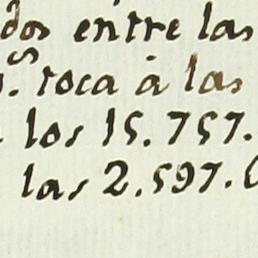 dos entre las
s. toca á las
los 15.757.
las 2.597.